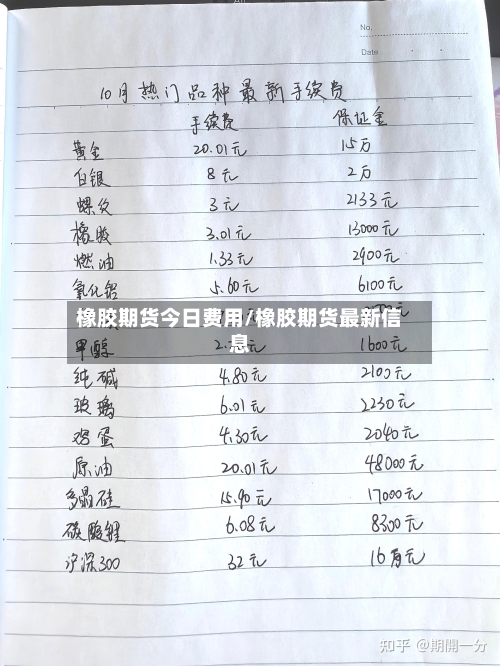 No.
Date
10月热门品种最新手续费
手续费 保证金
黄金 20.01元 15万
白银 8元 2万
螺纹 3元 2133元
橡胶 3.01元 13000元
燃油 1.33元 2900元
氧化铝 5.60元 6100元
橡胶期货今日费用/橡胶期货最新信
息
甲醇 1600元
纯碱 4.80元 2100元
玻璃 6.01元 2230元
鸡蛋 4.30元 2040元
原油 20.01元 48000元
多晶硅 15.90元 17000元
碳酸锂 6.08元 8300元
沪深300 32元 16万元
知乎 @期開一分